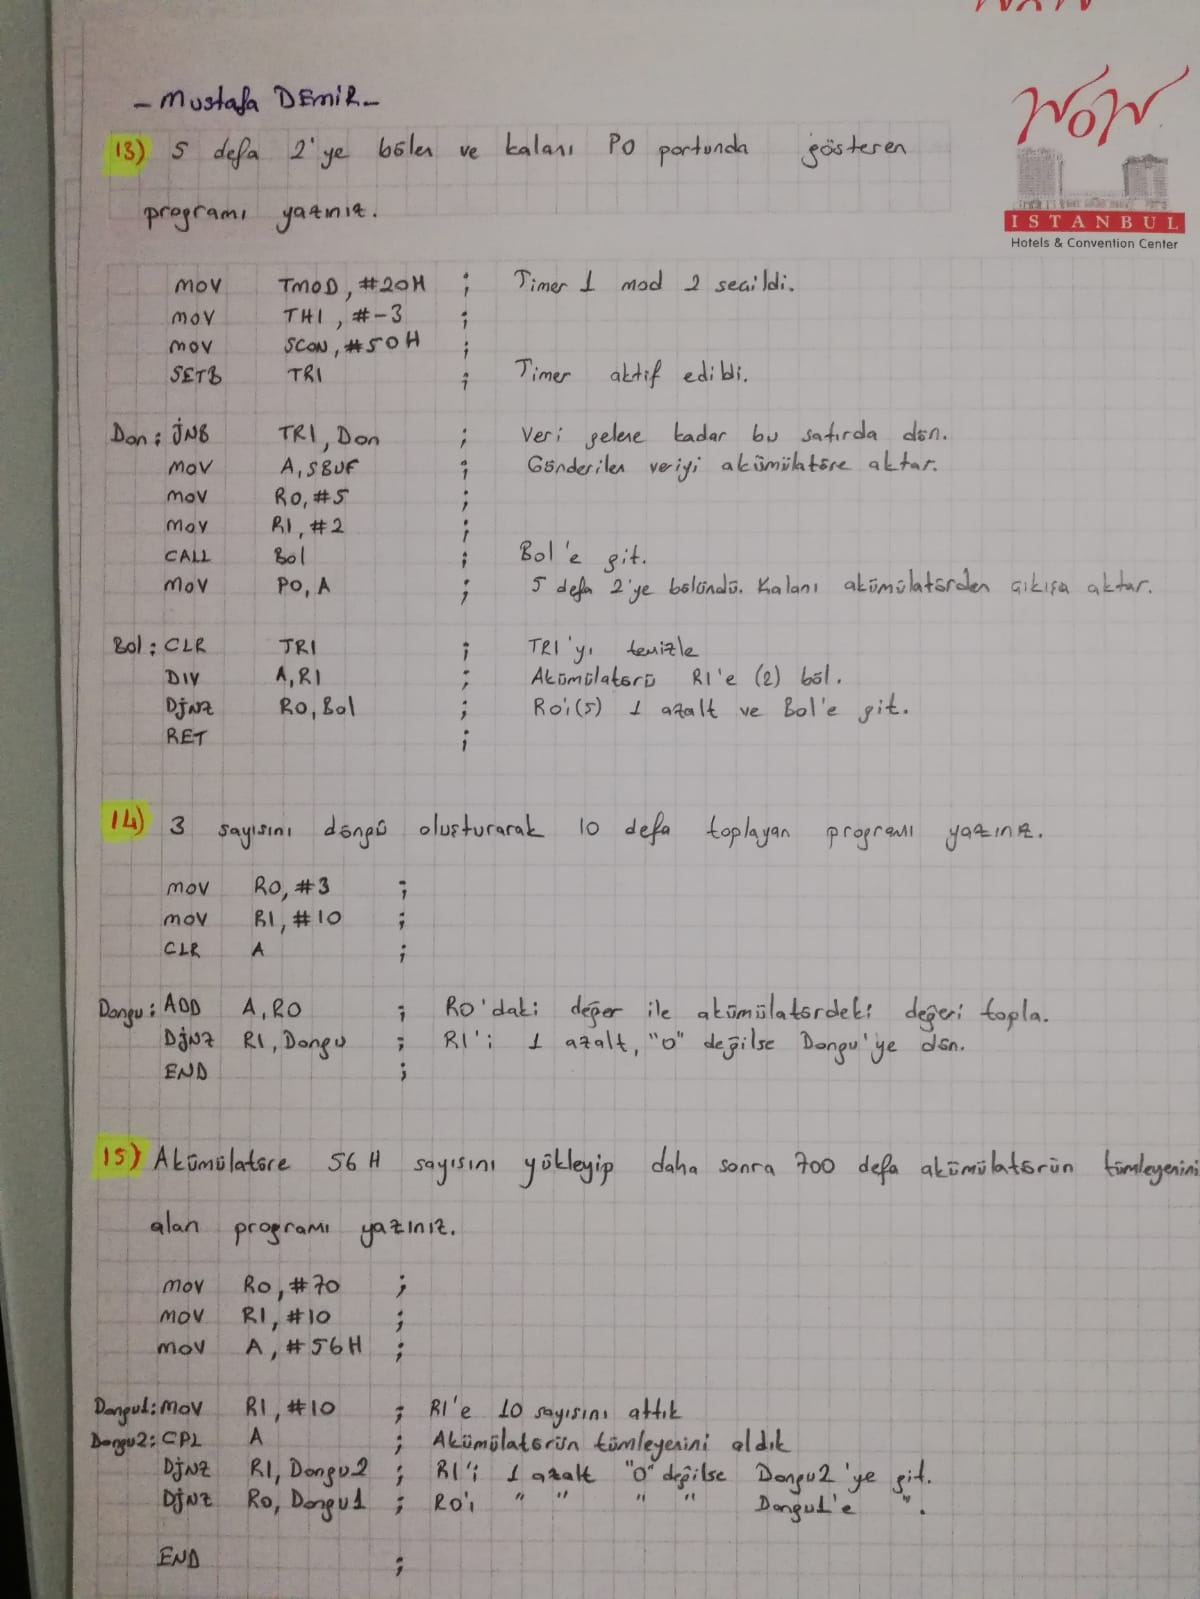 - Mustafa DEMİR -
WOW
ISTANBUL
Hotels & Convention Center
13) 5 defa 2'ye bölen ve kalanı P0 portunda gösteren
programı yazınız.
MOV TMOD, #20H ; Timer 1 mod 2 secildi.
MOV TH1, #-3 ;
MOV SCON, #50H ;
SETB TR1 ; Timer aktif edildi.
Don: JNB TR1, Don ; Veri gelene kadar bu satırda dön.
MOV A, SBUF ; Gönderilen veriyi akümülatöre aktar.
MOV R0, #5 ;
MOV R1, #2 ;
CALL Bol ; Bol'e git.
MOV P0, A ; 5 defa 2'ye bölündü. Kalanı akümülatörden çıkışa aktar.
Bol: CLR TR1 ; TR1'yı temizle
DIV A, R1 ; Akümülatörü R1'e (2) böl.
DJNZ R0, Bol ; R0'ı (5) 1 azalt ve Bol'e git.
RET ;
14) 3 sayısını döngü oluşturarak 10 defa toplayan programı yazınız.
MOV R0, #3 ;
MOV R1, #10 ;
CLR A ;
Dongu: ADD A, R0 ; R0'daki değer ile akümülatördeki değeri topla.
DJNZ R1, Dongu ; R1'i 1 azalt, "0" değilse Dongu'ye dön.
END ;
15) Akümülatöre 56H sayısını yükleyip daha sonra 700 defa akümülatörün tümleyenini
alan programı yazınız.
MOV R0, #70 ;
MOV R1, #10 ;
MOV A, #56H ;
Dongu1: MOV R1, #10 ; R1'e 10 sayısını attık
Dongu2: CPL A ; Akümülatörün tümleyenini aldık
DJNZ R1, Dongu2 ; R1'i 1 azalt "0" değilse Dongu2'ye git.
DJNZ R0, Dongu1 ; R0'ı " " " " Dongu1'e ".
END ;